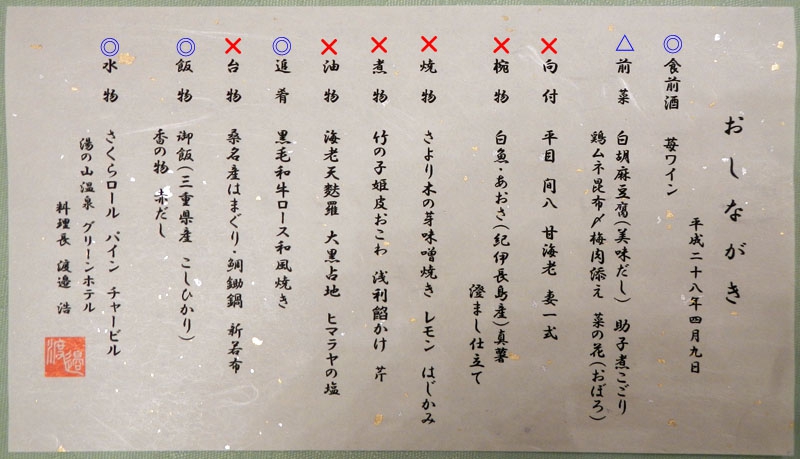 おしながき
平成二十八年四月九日
◎食前酒 苺ワイン
△前菜 白胡麻豆腐(美味だし) 助子煮こごり
鶏ムネ昆布〆梅肉添え 菜の花(おぼろ)
×向付 平目 間八 甘海老 妻一式
×椀物 白魚・あおさ(紀伊長島産)真薯
澄まし仕立て
×焼物 さより木の芽味噌焼き レモン はじかみ
×煮物 竹の子姫皮おこわ 浅利餡かけ 芹
×油物 海老天麩羅 大黒占地 ヒマラヤの塩
◎追肴 黒毛和牛ロース和風焼き
×台物 桑名産はまぐり・鯛鋤鍋 新若布
◎飯物 御飯(三重県産 こしひかり)
香の物 赤だし
◎水物 さくらロール パイン チャービル
湯の山温泉 グリーンホテル
料理長 渡邉 浩
渡邉